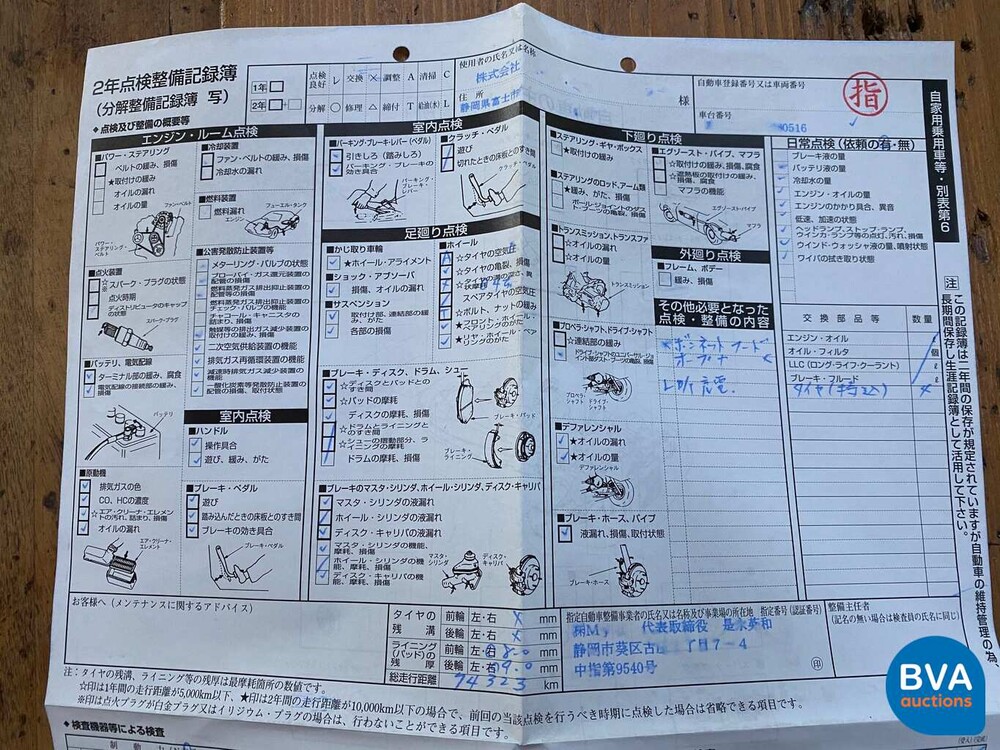 2年点検整備記録簿
(分解整備記録簿 写)
1年
2年
点検良好 レ 交換 × 調整 A 清掃 C
分解 ○ 修理 △ 締付 T 給油(水) L
使用者の氏名又は名称
株式会社
住所
静岡県富士市
様
自動車登録番号又は車両番号
車台番号
0516
指
自家用乗用車等・別表第6
◆点検及び整備の概要等
エンジン・ルーム点検
■パワー・ステアリング
ベルトの緩み、損傷
★取付けの緩み
オイルの漏れ
オイルの量
ファン・ベルト
パワー・ステアリング・ベルト
■点火装置
☆スパーク・プラグの状態
点火時期
ディストリビュータのキャップの状態
スパーク・プラグ
■バッテリ、電気配線
ターミナル部の緩み、腐食
電気配線の接続部の緩み、損傷
バッテリ
■原動機
排気ガスの色
CO、HCの濃度
☆エア・クリーナ・エレメントの汚れ、詰まり、損傷
オイルの漏れ
エア・クリーナ・エレメント
■冷却装置
ファン・ベルトの緩み、損傷
冷却水の漏れ
■燃料装置
燃料漏れ
フューエル・タンク
エンジン
■公害発散防止装置等
メターリング・バルブの状態
ブローバイ・ガス還元装置の配管の損傷
燃料蒸発ガス排出抑止装置の配管等の損傷
燃料蒸発ガス排出抑止装置のチェック・バルブの機能
チャコール・キャニスタの詰まり、損傷
触媒等の排出ガス減少装置の取付けの緩み、損傷
二次空気供給装置の機能
排気ガス再循環装置の機能
減速時排気ガス減少装置の機能
一酸化炭素等発散防止装置の配管の損傷、取付状態
室内点検
■ハンドル
操作具合
遊び、緩み、がた
■ブレーキ・ペダル
遊び
踏み込んだときの床板とのすき間
ブレーキの効き具合
ブレーキ・ペダル
室内点検
■パーキング・ブレーキ・レバー(ペダル)
引きしろ(踏みしろ)
パーキング・ブレーキの効き具合
パーキング・ブレーキ・レバー
■クラッチ・ペダル
遊び
切れたときの床板とのすき間
クラッチ・ペダル
足廻り点検
■かじ取り車輪
★ホイール・アライメント
■ショック・アブソーバ
損傷、オイルの漏れ
■サスペンション
取付け部、連結部の緩み
各部の損傷
■ホイール
☆タイヤの空気圧
☆タイヤの亀裂、損傷
スペアタイヤの空気圧
☆ボルト、ナットの緩み
■ブレーキ・ディスク、ドラム、シュー
☆ディスクとパッドとのすき間
☆パッドの摩耗
ディスクの摩耗、損傷
☆ドラムとライニングとのすき間
☆シューの摺動部分、ライニングの摩耗
ドラムの摩耗、損傷
ブレーキ・パッド
ブレーキ・ライニング
■ブレーキのマスタ・シリンダ、ホイール・シリンダ、ディスク・キャリパ
マスタ・シリンダの液漏れ
ホイール・シリンダの液漏れ
ディスク・キャリパの液漏れ
マスタ・シリンダの機能、摩耗、損傷
ホイール・シリンダの機能、摩耗、損傷
ディスク・キャリパの機能、摩耗、損傷
マスタ・シリンダ
ディスク・キャリパ
下廻り点検
■ステアリング・ギヤ・ボックス
★取付けの緩み
■ステアリングのロッド、アーム類
☆緩み、がた、損傷
ボール・ジョイントのダスト・ブーツの亀裂、損傷
■トランスミッション、トランスファ
☆オイルの漏れ
☆オイルの量
トランスミッション
■プロペラ・シャフト、ドライブ・シャフト
☆連結部の緩み
ドライブ・シャフトのユニバーサル・ジョイント部のダスト・ブーツの亀裂、損傷
プロペラ・シャフト
ドライブ・シャフト
■デファレンシャル
★オイルの漏れ
★オイルの量
デファレンシャル
■ブレーキ・ホース、パイプ
液漏れ、損傷、取付状態
ブレーキ・ホース
■エグゾースト・パイプ、マフラ
☆取付けの緩み、損傷、腐食
☆遮熱板の取付けの緩み、損傷、腐食
マフラの機能
エグゾースト・パイプ
マフラ
外廻り点検
■フレーム、ボデー
緩み、損傷
その他必要となった点検・整備の内容
ボンネットフード
オープナ
日常点検(依頼の有・無)
ブレーキ液の量
バッテリ液の量
冷却水の量
エンジン・オイルの量
エンジンのかかり具合、異音
低速、加速の状態
ヘッドランプ、ストップ・ランプ、ウインカ・ランプ等の点灯、汚れ、損傷
ウインド・ウォッシャ液の量、噴射状態
ワイパの拭き取り状態
交換部品等 数量
エンジン・オイル ℓ
オイル・フィルタ 個
LLC(ロング・ライフ・クーラント) ℓ
ブレーキ・フルード ℓ
注 この記録簿は二年間の保存が規定されていますが自動車の維持管理の為、
長期間保存し生涯記録簿として活用して下さい。
お客様へ(メンテナンスに関するアドバイス)
タイヤの残溝 前輪 左・右 × mm
後輪 左・右 × mm
ライニング(パッド)の残厚 前輪 左・右 8.0 mm
後輪 左・右 9.0 mm
総走行距離 74323 km
指定自動車整備事業者の氏名又は名称及び事業場の所在地 指定番号(認証番号)
代表取締役 是永英和
静岡市葵区古庄 丁目7-4
中指第9540号
印
整備主任者
(記名の無い場合は検査員の氏名に同じ)
注:タイヤの残溝、ライニング等の残厚は最摩耗箇所の数値です。
☆印は1年間の走行距離が5,000km以下、★印は2年間の走行距離が10,000km以下の場合で、前回の当該点検を行うべき時期に点検した場合は省略できる項目です。
※印は点火プラグが白金プラグ又はイリジウム・プラグの場合は、行わないことができる項目です。
◆検査機器等による検査
BVA
auctions